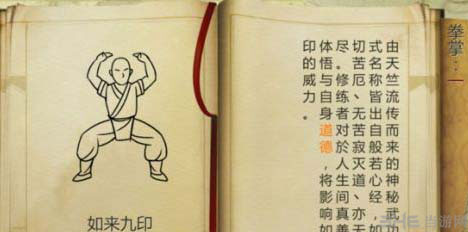 拳掌：一
由天竺流传而来的神秘武功
式名称皆出自般若心经，如
切苦厄、无苦寂灭道、亦无
尽。修练者对於人生间真善
体悟与自身道德，将影响如
印的威力。
如来九印
当游网